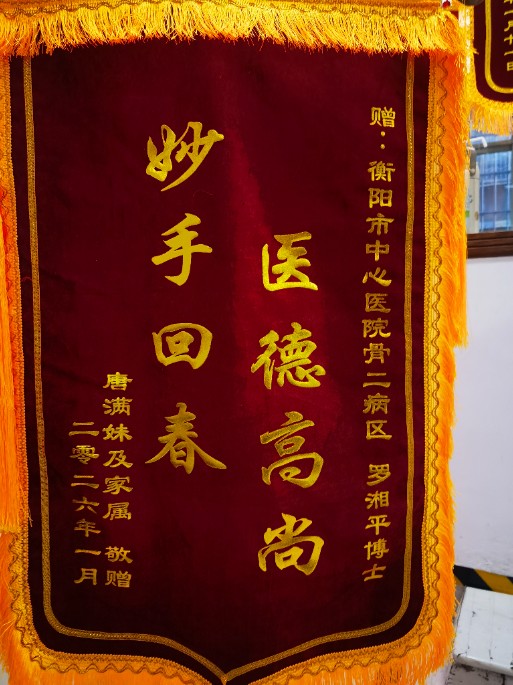 赠：衡阳市中心医院骨二病区 罗湘平博士
医德高尚
妙手回春
唐满妹及家属 敬赠
二零二六年一月